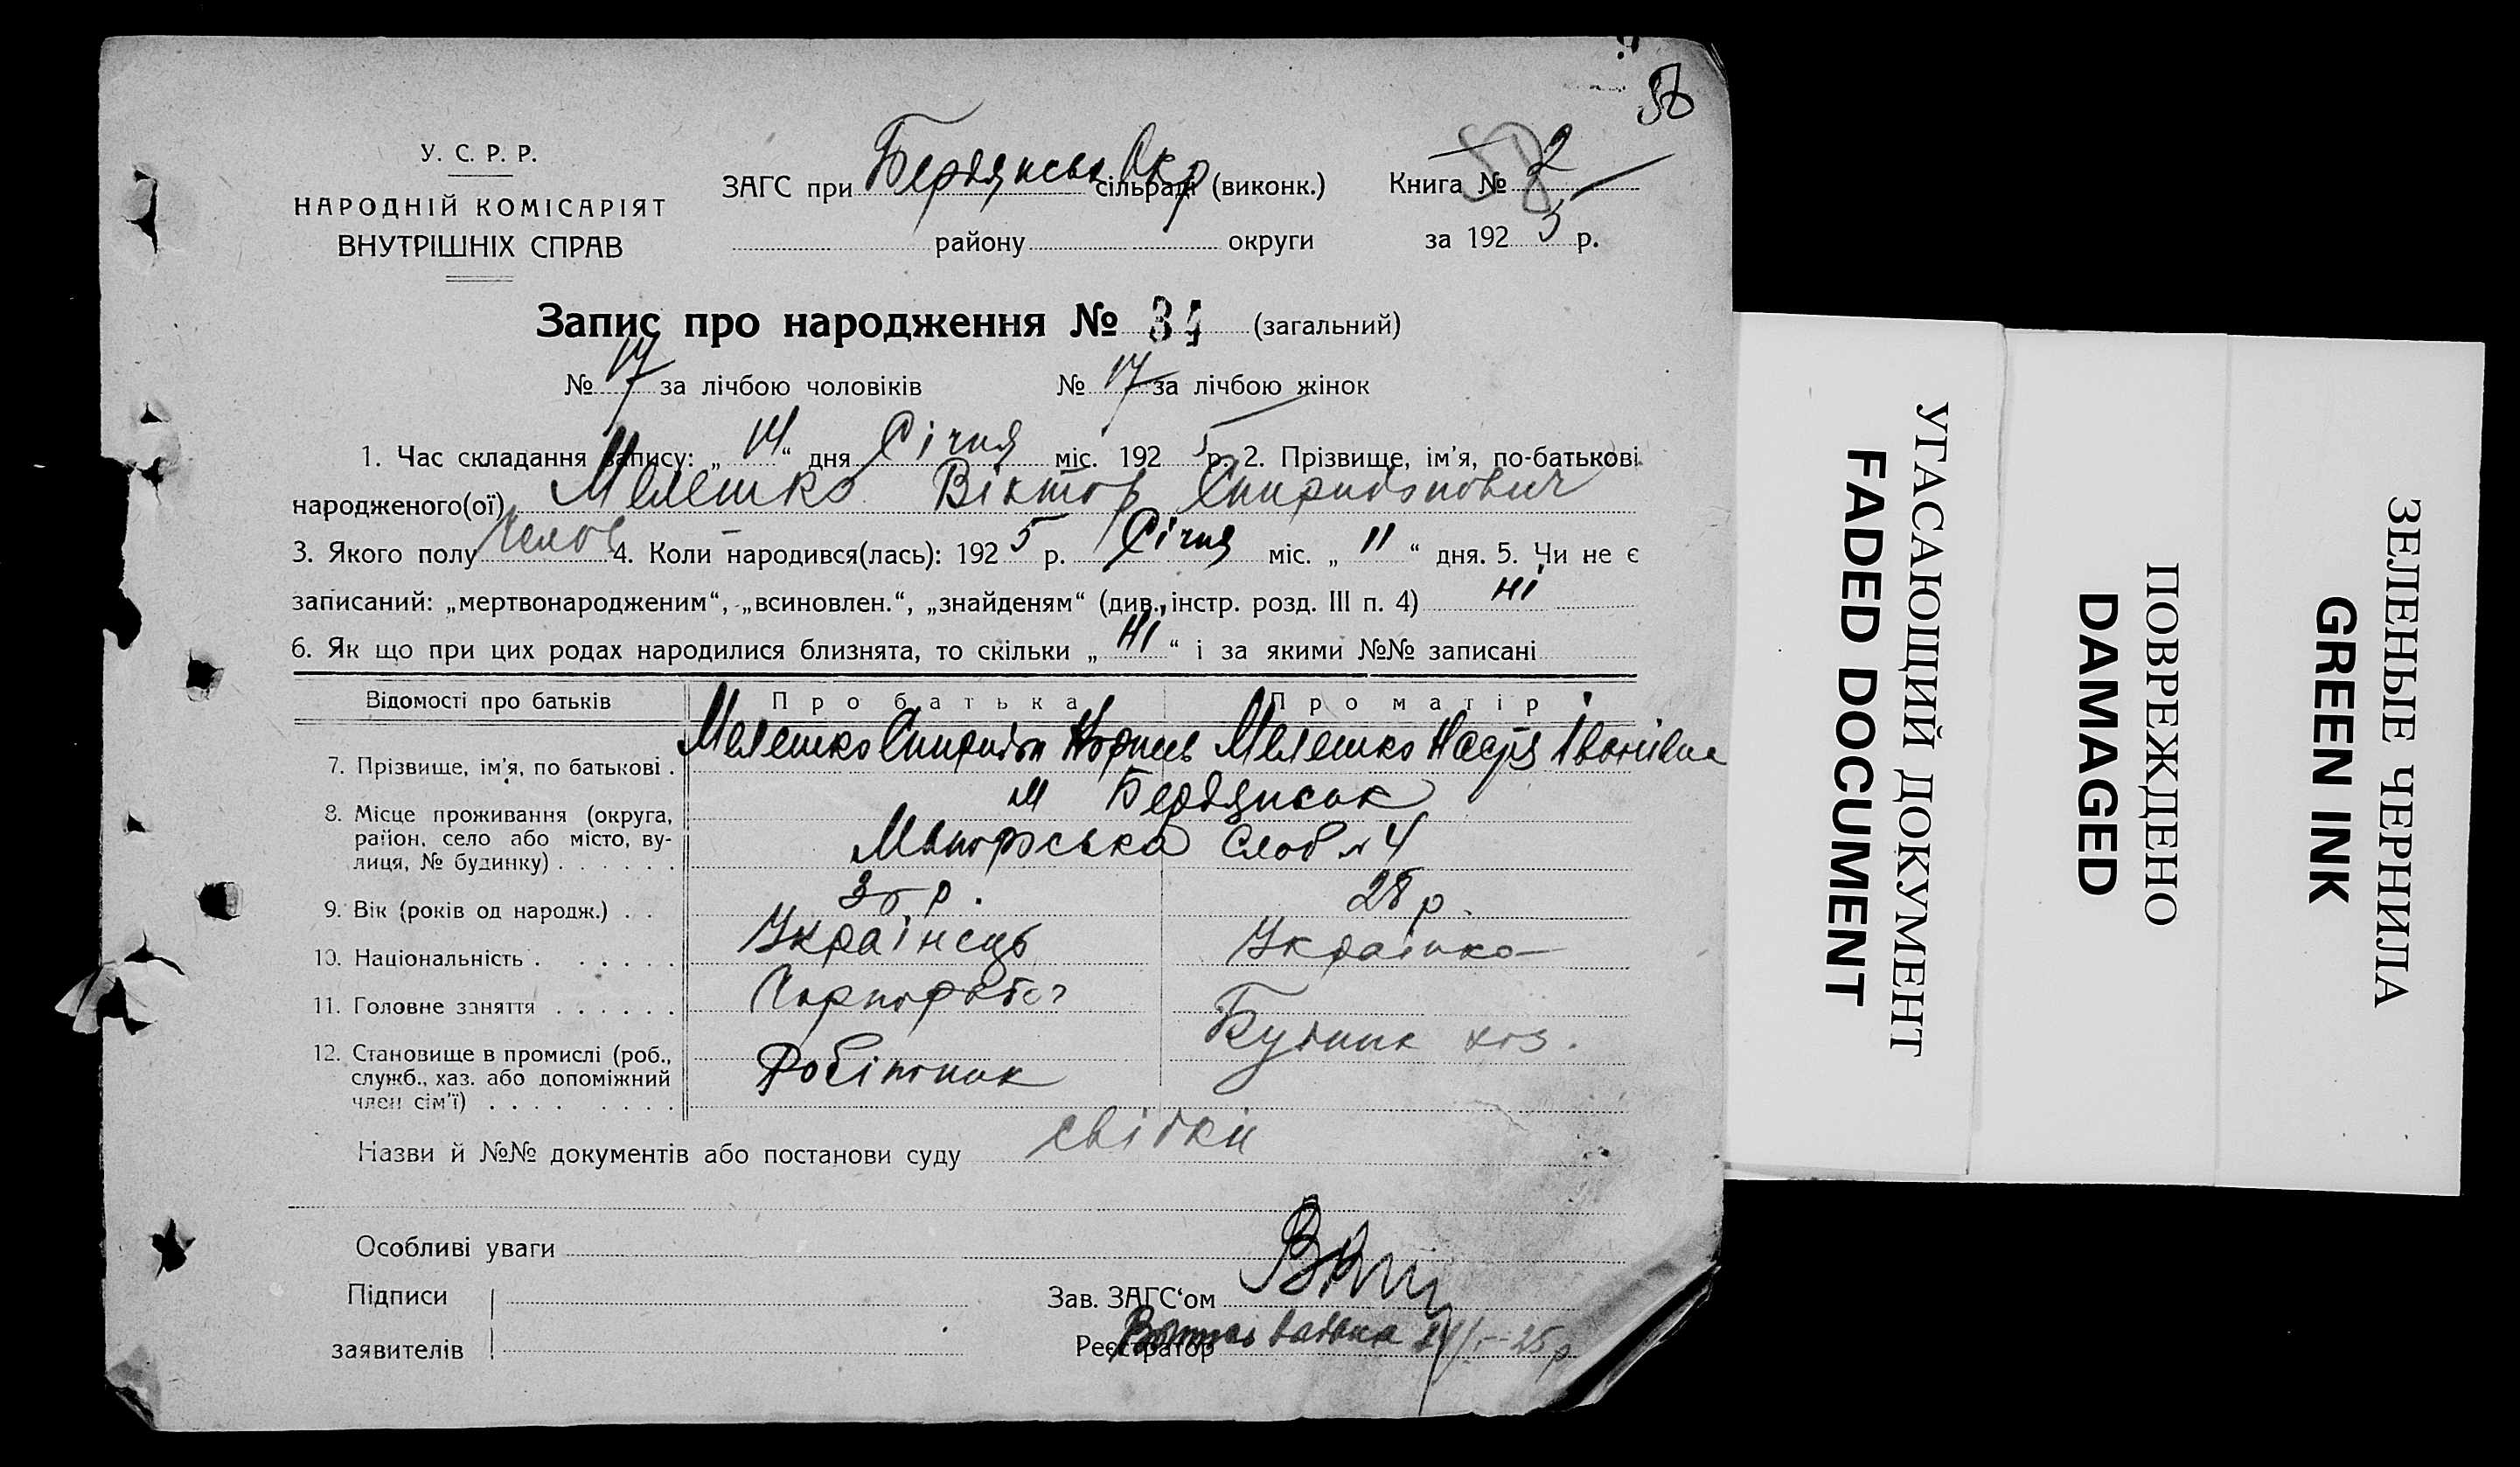 58
У. С. Р. Р.
НАРОДНІЙ КОМІСАРІЯТ
ВНУТРІШНІХ СПРАВ
ЗАГС при Бердянськ Окр сільраді (виконк.)
району округи
58
Книга № 2
за 192 5 р.
Запис про народження № 34 (загальний)
№ 17 за лічбою чоловіків № 17 за лічбою жінок
1. Час складання запису: „ 14 “ дня Січня міс. 192 5 р. 2. Прізвище, ім'я, по-батькові
народженого(ої) Мелешко Віктор Спиридонович
3. Якого полу Челов 4. Коли народився(лась): 192 5 р. Січня міс. „ 11 “ дня. 5. Чи не є
записаний: „мертвонародженим“, „всиновлен.“, „знайденям“ (див. інстр. розд. III п. 4) ні
6. Як що при цих родах народилися близнята, то скільки „ ні “ і за якими №№ записані
Відомості про батьків Про батька Про матір
7. Прізвище, ім'я, по батькові . Мелешко Спиридон Мелешко Настя Іванівна
8. Місце проживання (округа, район, село або місто, вулиця, № будинку) . . . . . .
м Бердянськ
Слоб № 4
9. Вік (років од народж.) . . р. 28 р.
10. Національність . . . . . . Українець Українка
11. Головне заняття . . . . . . Чорнороboч
12. Становище в промислі (роб., служб., хаз. або допоміжний член сім'ї) . . . . . . . . Робітник хоз.
Назви й №№ документів або постанови суду свідки
Особливі уваги
Підписи
заявителів
Зав. ЗАГС'ом
Реєстратор
УГАСАЮЩИЙ ДОКУМЕНТ
FADED DOCUMENT
ПОВРЕЖДЕНО
DAMAGED
ЗЕЛЕНЫЕ ЧЕРНИЛА
GREEN INK